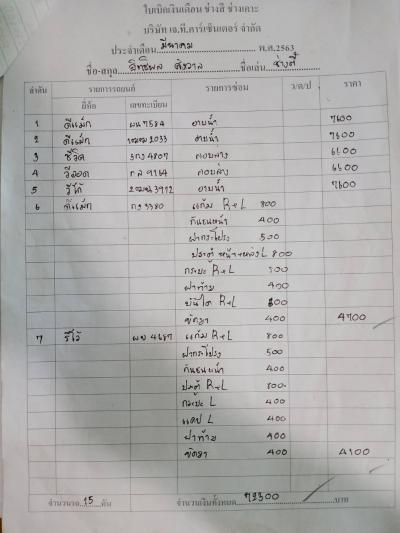 ใบเบิกเงินเดือน ช่างสี ช่างเคาะ
บริษัท เจ.ที.คาร์เซ็นเตอร์ จำกัด
ประจำเดือน มีนาคม พ.ศ.2563
ชื่อ-สกุล อิทธิพล ชื่อเล่น ช่างตี๋
ลำดับ รายการรถยนต์ รายการซ่อม ว/ด/ป ราคา
ยี่ห้อ เลขทะเบียน
1 ดีแม็ก ผน 7584 อาบน้ำ 7600
2 ดีแม็ก 2033 อาบน้ำ 7600
3 ชีวิค 3กง 4807 ครอบล่าง 6600
4 วีออส 9164 ครอบล่าง 6600
5 วีโก้ 3912 อาบน้ำ 7600
6 ดีแม็ก กง 3380 แก้ม R+L 800
กันชนหน้า 400
ฝากระโปรง 500
ประตู หน้า+หลัง L 800
กระบะ R+L 800
ฝาท้าย 400
บันได R+L 600
ขัดยา 400 4700
7 รีโว้ ผย 4687 แก้ม R+L 800
ฝากระโปรง 500
กันชนหน้า 400
ประตู R+L 800
กระบะ L 400
แคป L 400
ฝาท้าย 400
ขัดยา 400 4100
จำนวนรถ 15 คัน จำนวนเงินทั้งหมด 72300 บาท